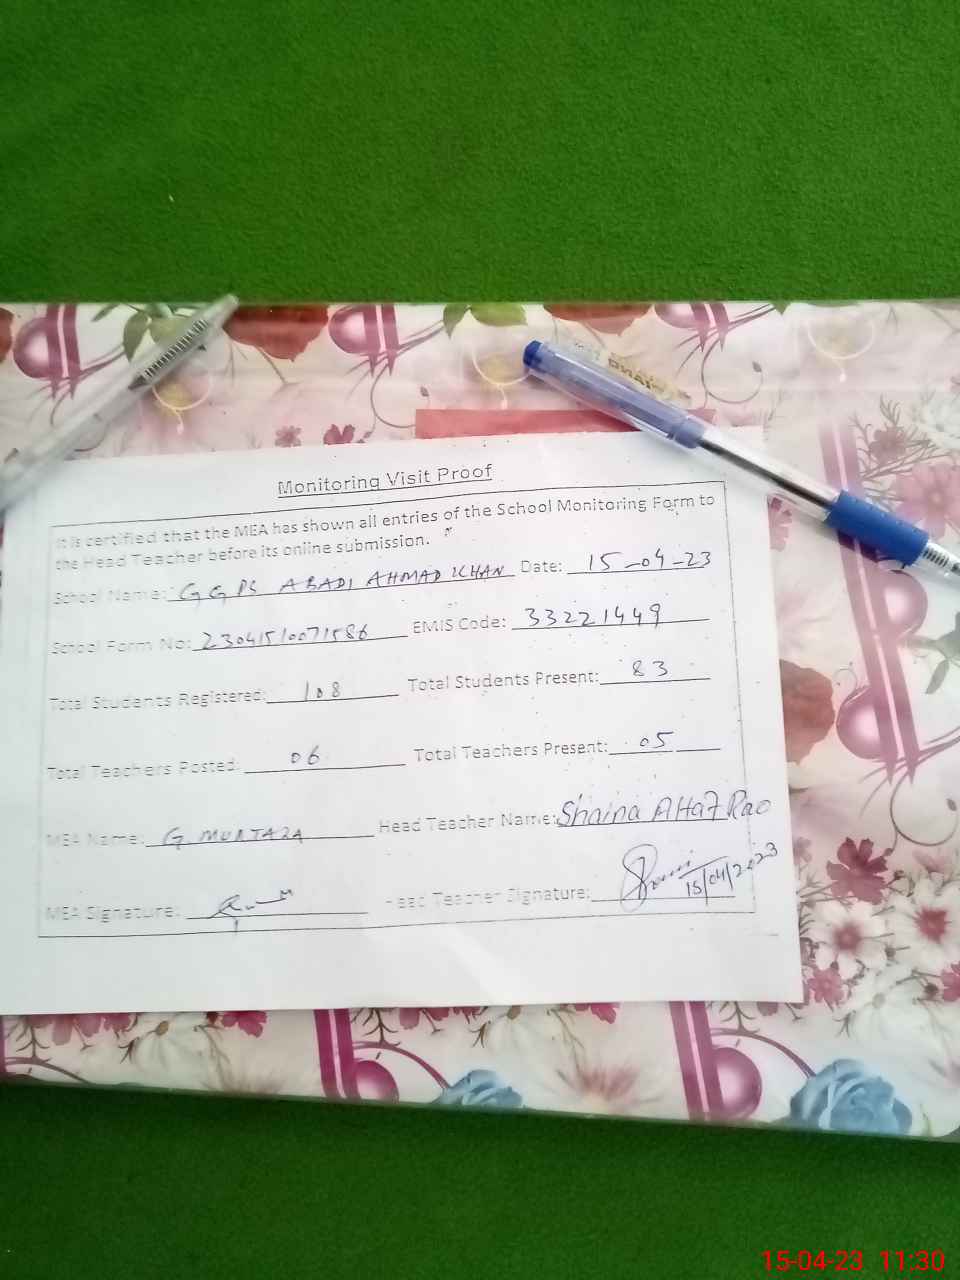 Monitoring Visit Proof
It is certified that the MEA has shown all entries of the School Monitoring Form to
the Head Teacher before its online submission.
School Name: GGPS ABADI AHMAD KHAN Date: 15-04-23
School Form No: 23041510071586 EMIS Code: 33221449
Total Students Registered: 108 Total Students Present: 83
Total Teachers Posted: 06 Total Teachers Present: 05
MEA Name: G. MURTAZA Head Teacher Name: Shaina Rao
MEA Signature: Head Teacher Signature: 15/04/2023
15-04-23 11:30